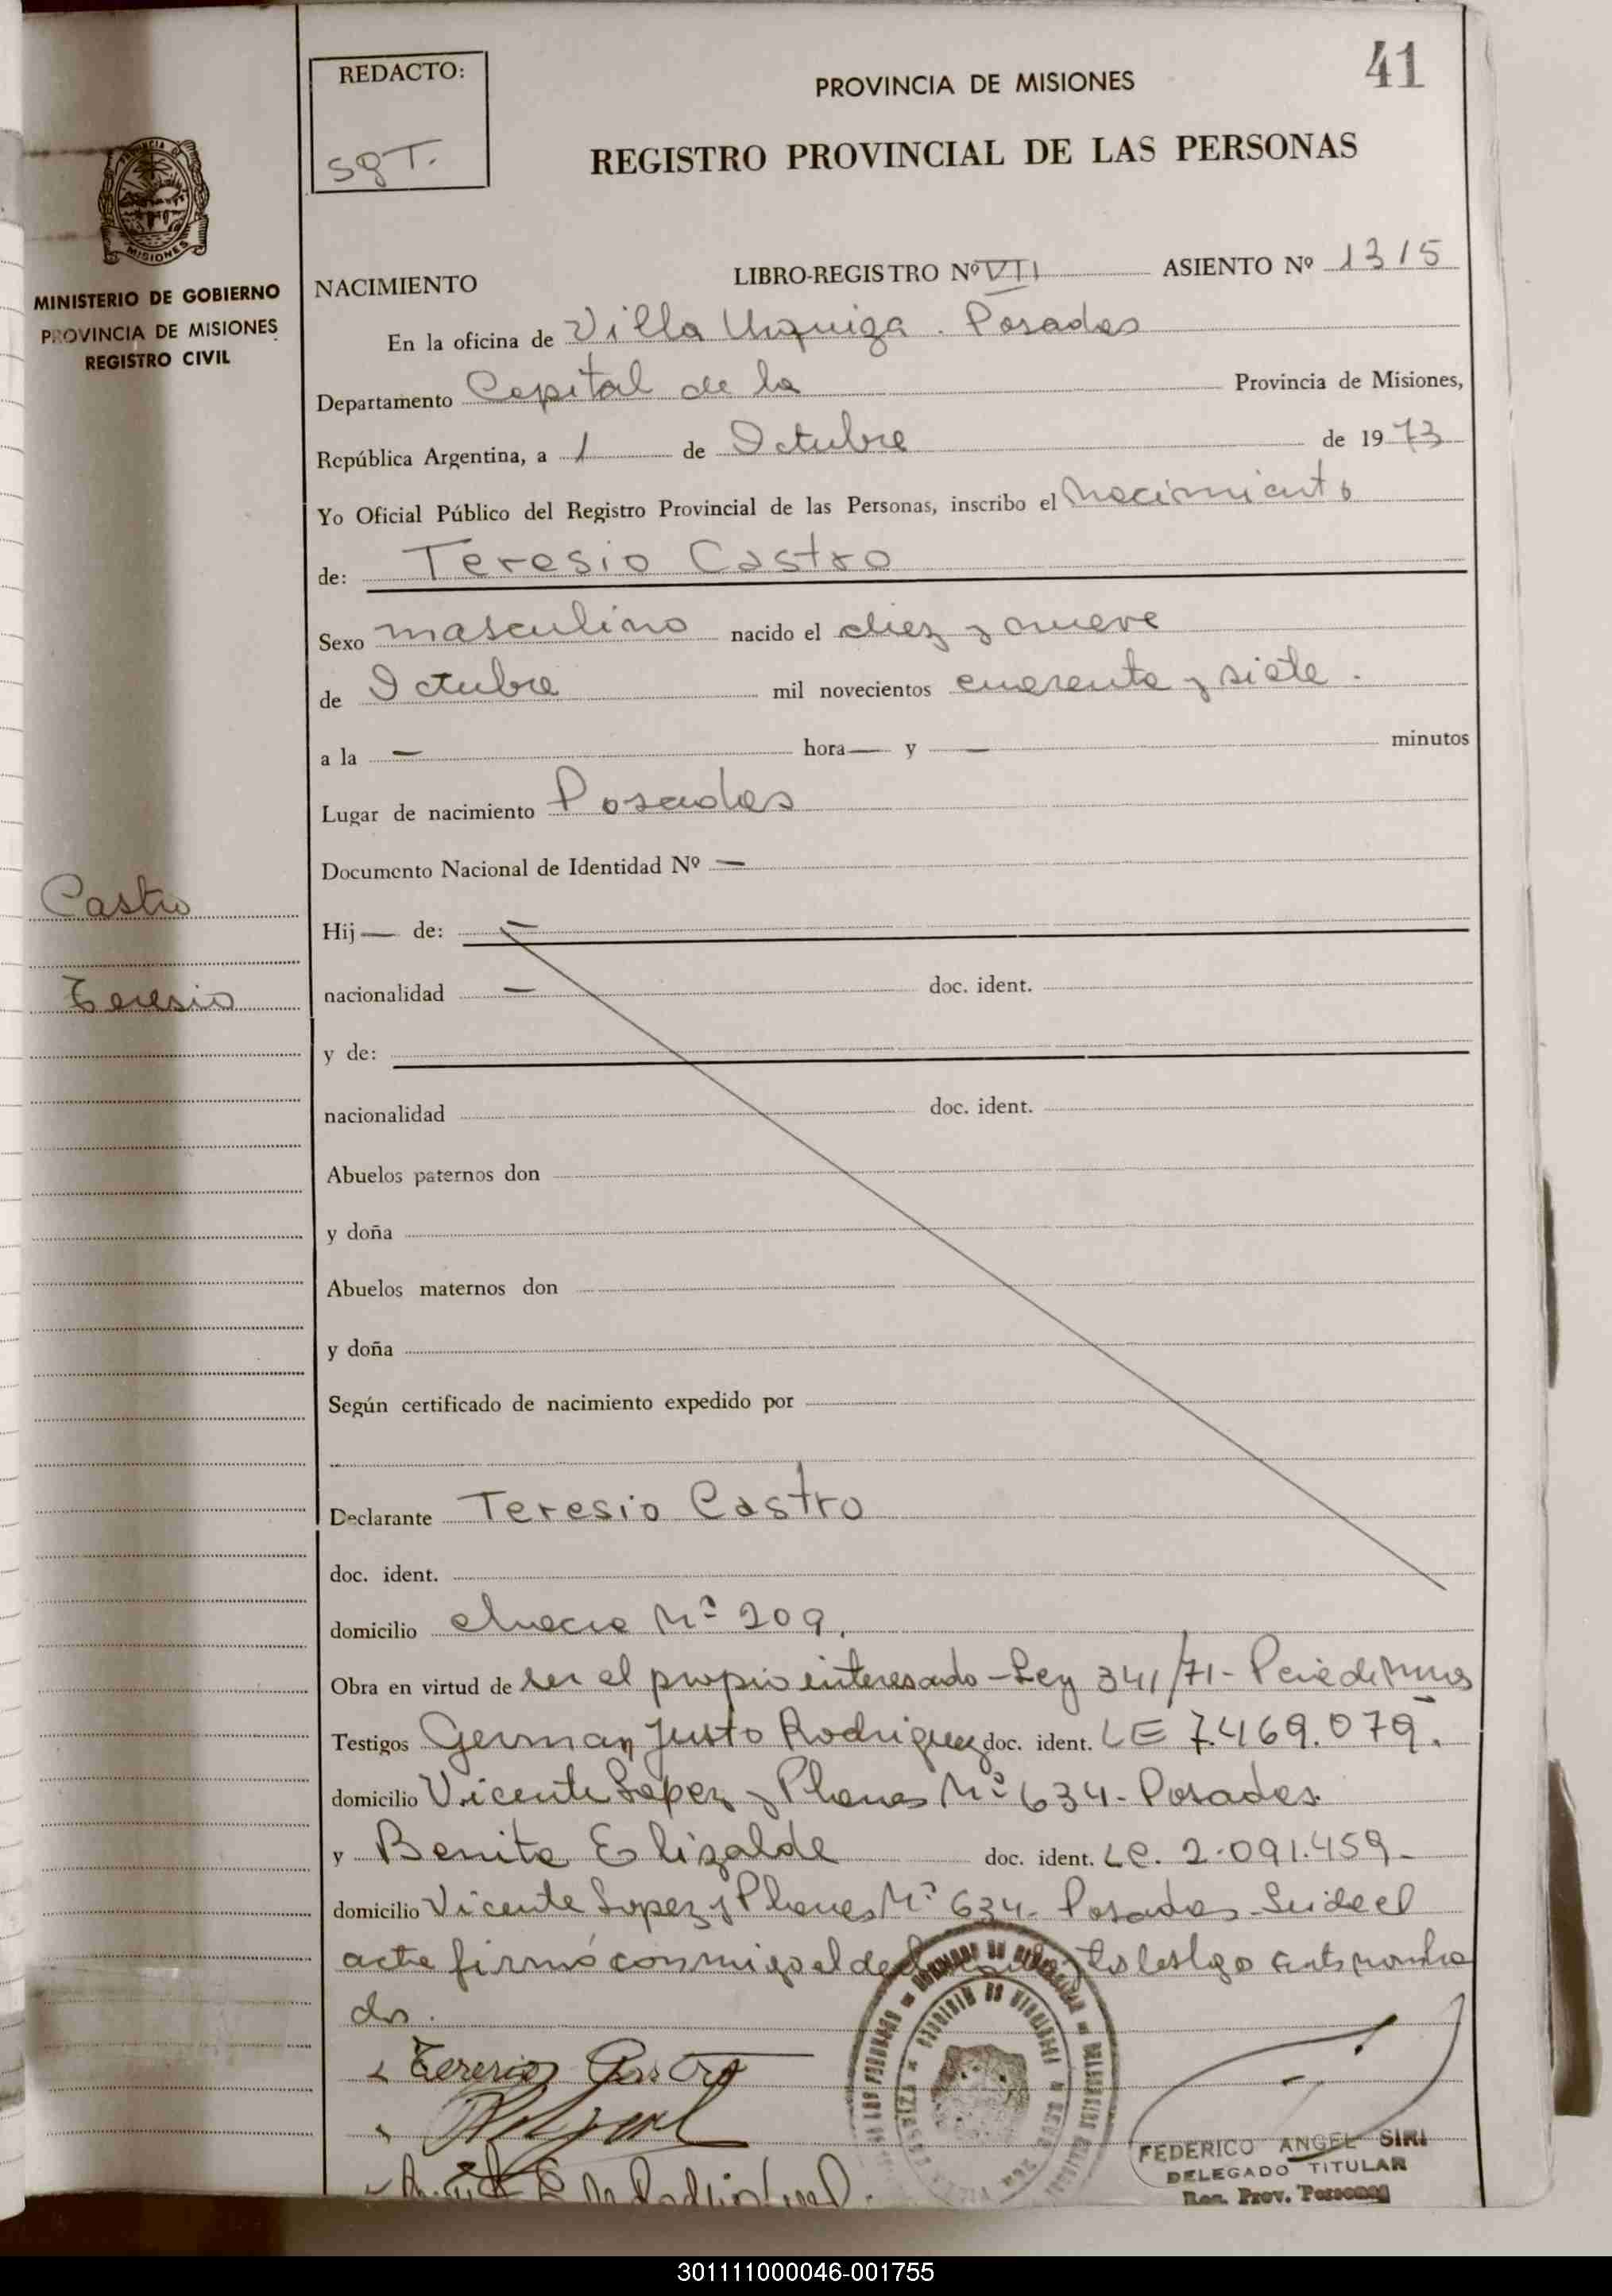 41
REDACTO:
sgT.
PROVINCIA DE MISIONES
REGISTRO PROVINCIAL DE LAS PERSONAS
MISIONES
MINISTERIO DE GOBIERNO
PROVINCIA DE MISIONES
REGISTRO CIVIL
NACIMIENTO LIBRO-REGISTRO Nº VII ASIENTO Nº 1315
En la oficina de Villa Urquiza. Posadas
Departamento Capital de la Provincia de Misiones,
República Argentina, a 1 de Octubre de 1973
Yo Oficial Público del Registro Provincial de las Personas, inscribo el Nacimiento
de: Teresio Castro
Sexo masculino nacido el diez y nueve
de Octubre mil novecientos cuarenta y siete.
a la — hora — y — minutos
Lugar de nacimiento Posadas
Documento Nacional de Identidad Nº —
Castro
Teresio
Hij — de: —
nacionalidad — doc. ident.
y de:
nacionalidad doc. ident.
Abuelos paternos don
y doña
Abuelos maternos don
y doña
Según certificado de nacimiento expedido por
Declarante Teresio Castro
doc. ident.
domicilio chacra Nº 209.
Obra en virtud de ser el propio interesado - Ley 341/71 -
Testigos German Justo Rodriguez doc. ident. LE 7.469.079.
domicilio Vicente Lopez y Planes Nº 634 - Posadas.
y Benita Elizalde doc. ident. LC. 2.091.459-
domicilio Vicente Lopez y Planes Nº 634- Posadas - Leide el
acta firmó conmigo el testigo
dos.
Teresio Castro
FEDERICO ANGEL SIRI
DELEGADO TITULAR
Reg. Prov. Personas
301111000046-001755